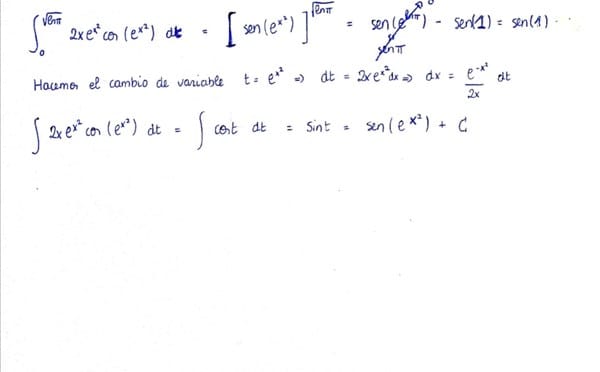 ∫₀^√(ln π) 2xe^x² cos (e^x²) dt = [ sen (e^x²) ]^√(ln π) = sen(e^ln π) - sen(1) = sen(1).
sen π
Hacemos el cambio de variable t = e^x² => dt = 2xe^x² dx => dx = e^-x²/2x dt
∫ 2xe^x² cos (e^x²) dt = ∫ cost dt = sint = sen (e^x²) + C